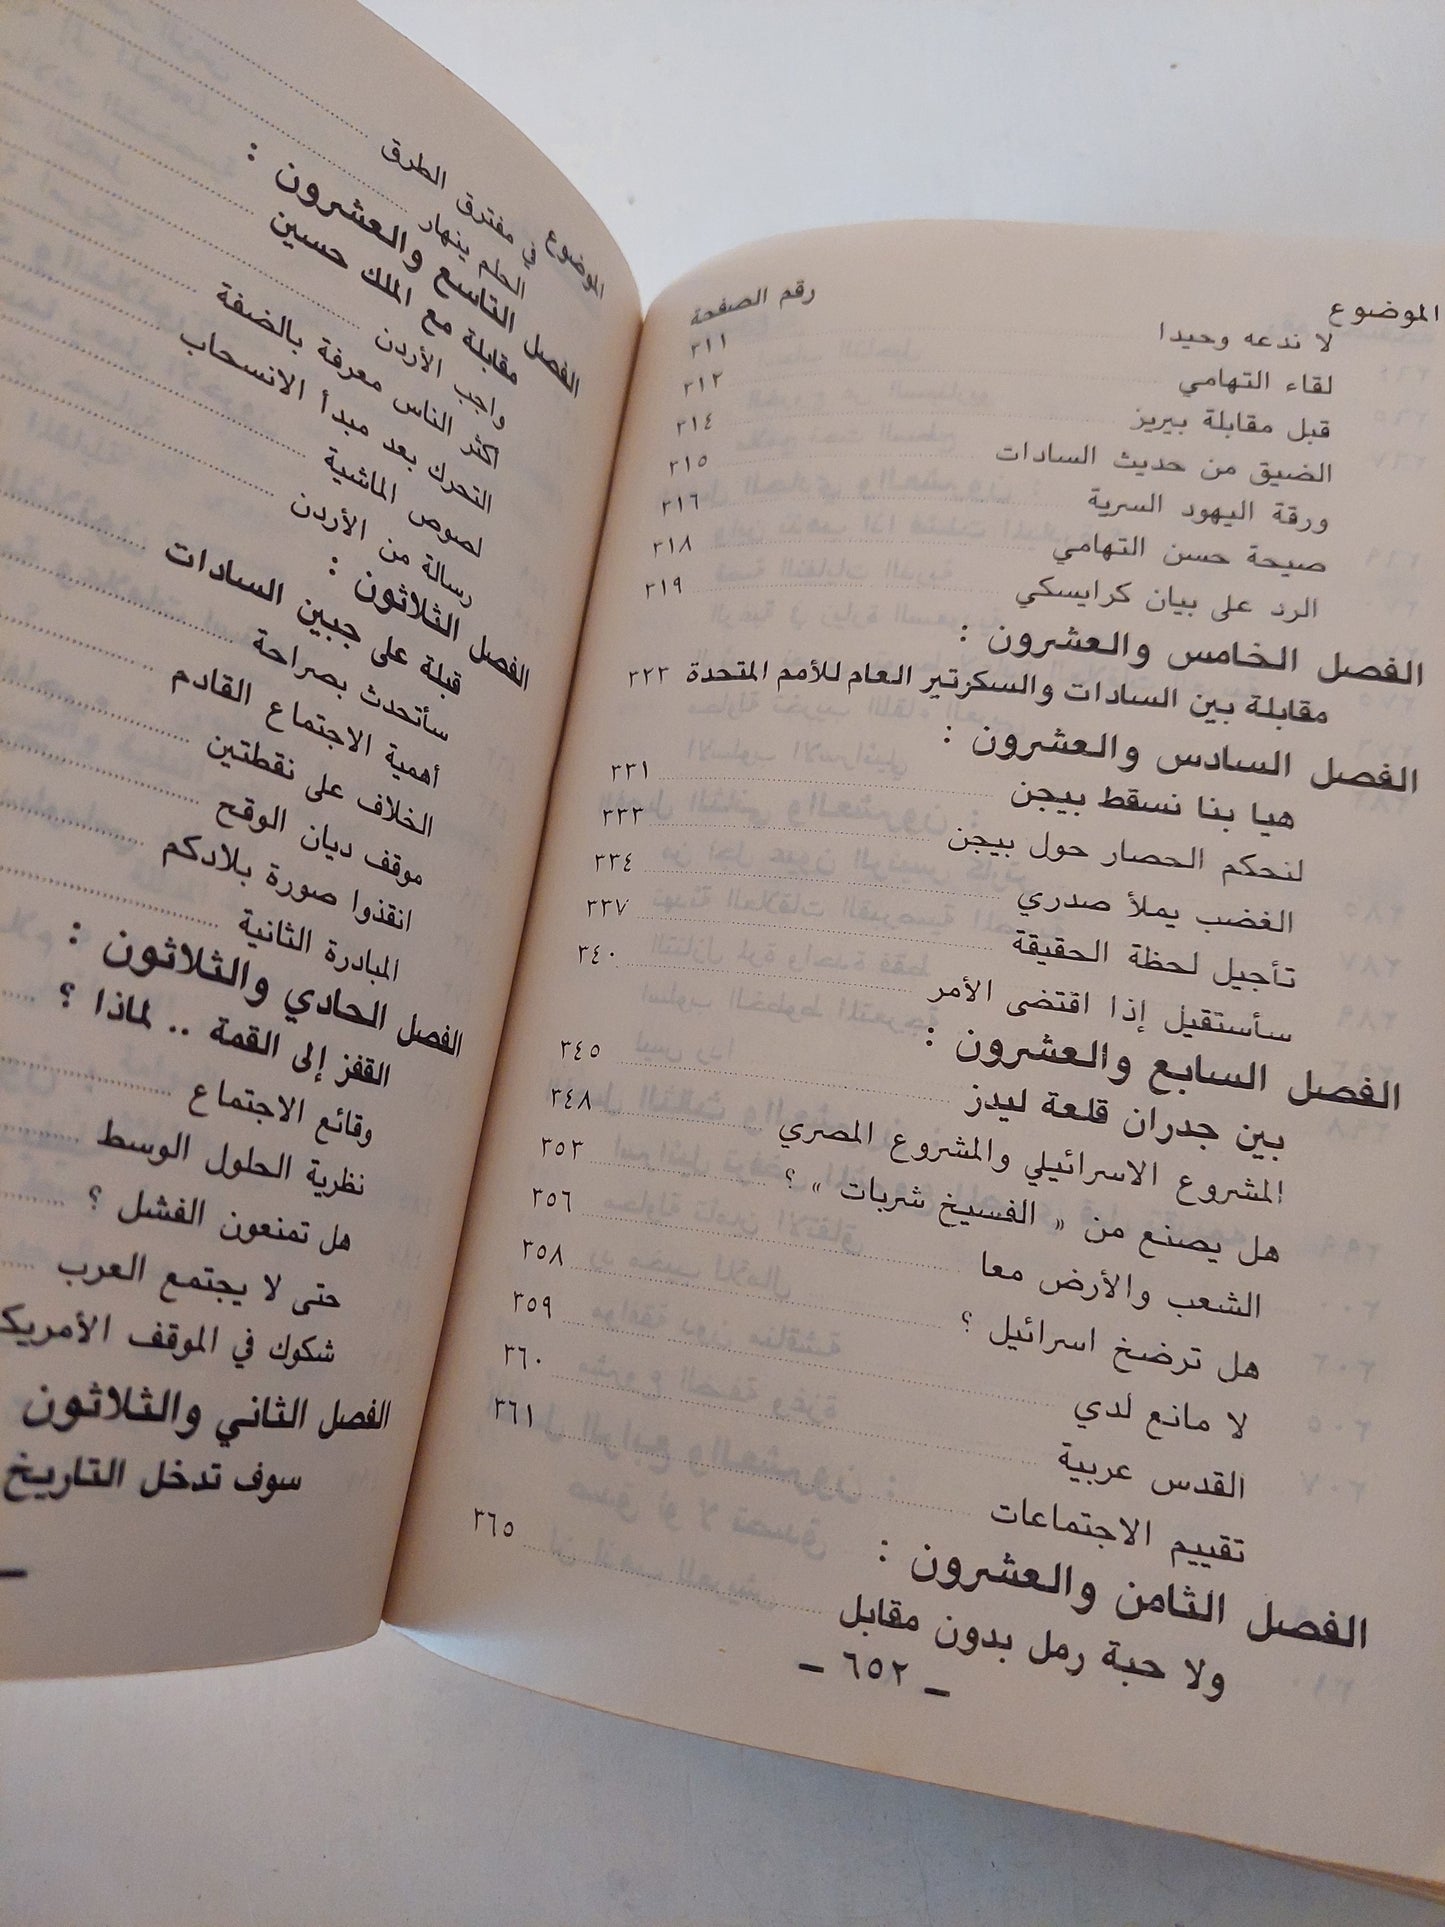 الموضوع رقم الصفحة
لا ندعه وحيدا ٣١١
لقاء التهامي ٣١٢
قبل مقابلة بيريز ٣١٤
الضيق من حديث السادات ٣١٥
ورقة اليهود السرية ٣١٦
صيحة حسن التهامي ٣١٨
الرد على بيان كرايسكي ٣١٩
الفصل الخامس والعشرون :
مقابلة بين السادات والسكرتير العام للأمم المتحدة ٣٢٣
الفصل السادس والعشرون :
هيا بنا نسقط بيجن ٣٣١
لنحكم الحصار حول بيجن ٣٣٣
الغضب يملأ صدري ٣٣٤
تأجيل لحظة الحقيقة ٣٣٧
سأستقيل إذا اقتضى الأمر ٣٤٠
الفصل السابع والعشرون :
بين جدران قلعة ليدز ٣٤٥
المشروع الاسرائيلي والمشروع المصري ٣٤٨
هل يصنع من « الفسيخ شربات » ؟ ٣٥٣
الشعب والأرض معا ٣٥٦
هل ترضخ اسرائيل ؟ ٣٥٨
لا مانع لدي ٣٥٩
القدس عربية ٣٦٠
تقييم الاجتماعات ٣٦١
الفصل الثامن والعشرون :
ولا حبة رمل بدون مقابل ٣٦٥
– ٦٥٢ –
الموضوع
في مفترق الطرق
الحلم ينهار
الفصل التاسع والعشرون :
مقابلة مع الملك حسين
واجب الأردن
اكثر الناس معرفة بالضفة
التحرك بعد مبدأ الانسحاب
لصوص الماشية
رسالة من الأردن
الفصل الثلاثون :
قبلة على جبين السادات
سأتحدث بصراحة
أهمية الاجتماع القادم
الخلاف على نقطتين
موقف ديان الوقح
انقذوا صورة بلادكم
المبادرة الثانية
الفصل الحادي والثلاثون :
القفز إلى القمة .. لماذا ؟
وقائع الاجتماع
نظرية الحلول الوسط
هل تمنعون الفشل ؟
حتى لا يجتمع العرب
شكوك في الموقف
الفصل الثاني والثلاثون
سوف تدخل التاريخ